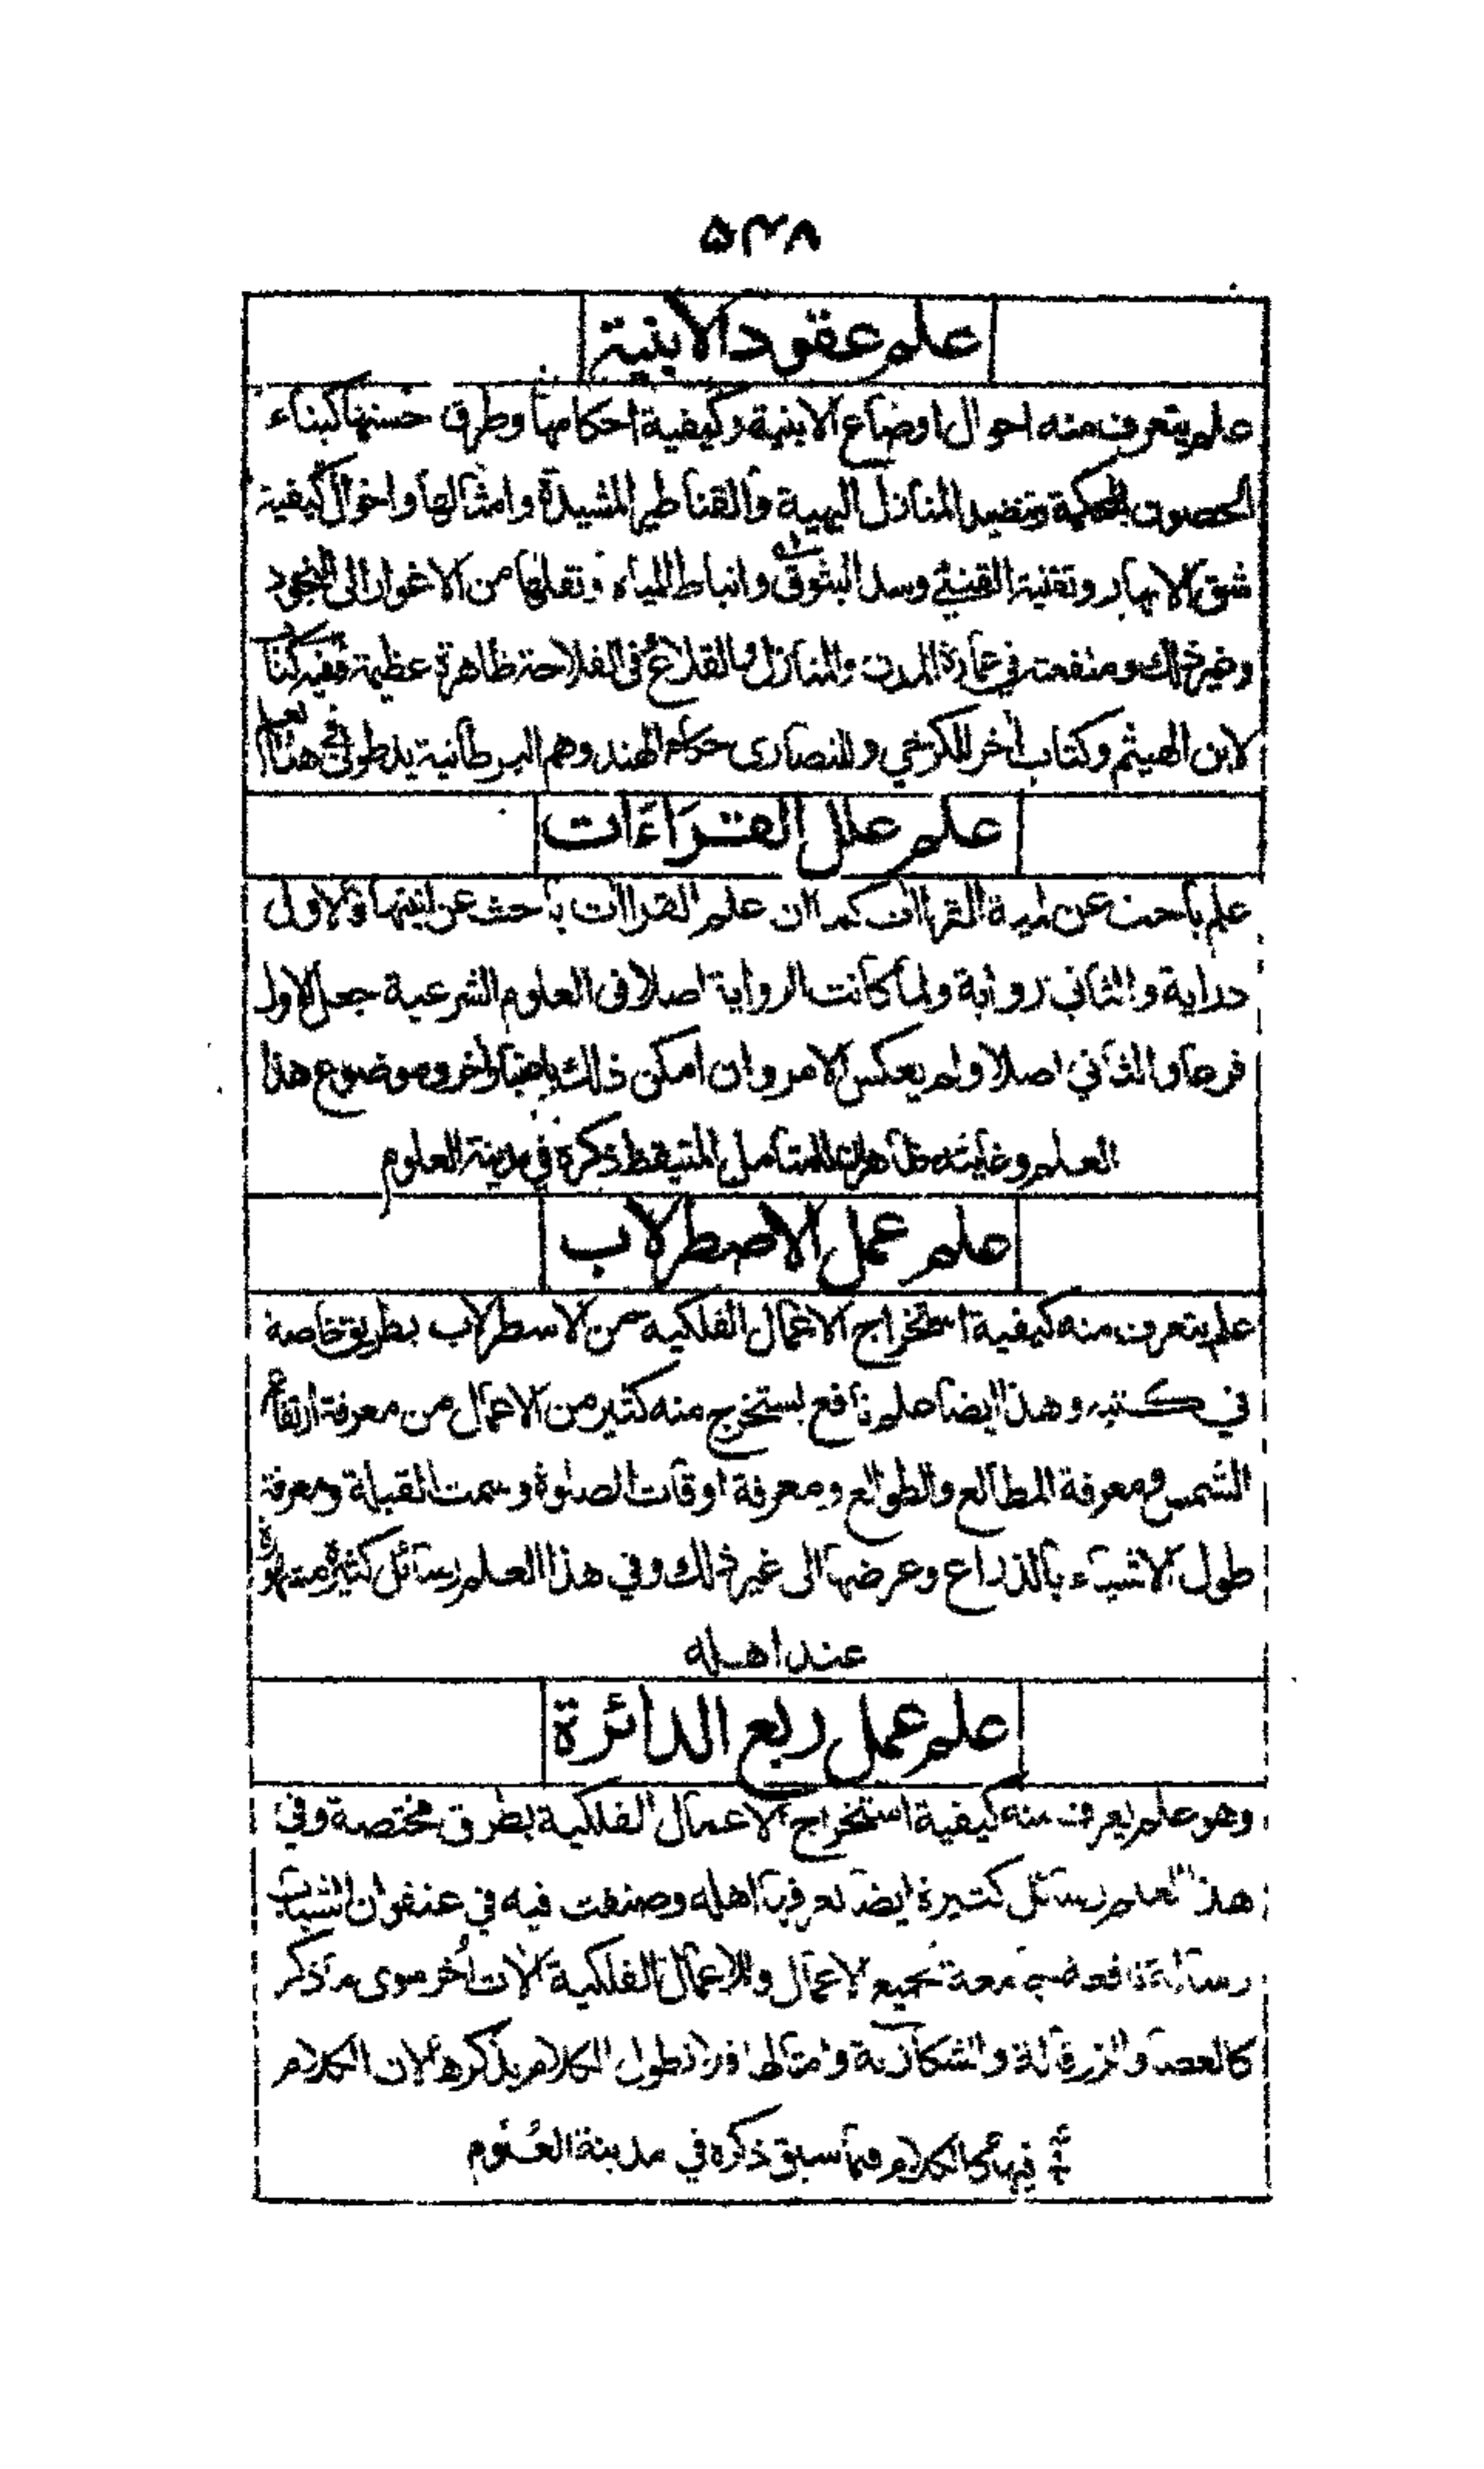 ۵۳۸
علم عقود الابنية
علم يتعرف منه احوال اوضاع الابنية وكيفية احكامها وطرق حسنها كبناء
الحصون المحكمة وتنضيد المنازل البهية والقناطر المشيدة وامثالها واحوال كيفية
شق الانهار وتقنية القني وسد البثوق وانباط المياه ونقلها من الاغوار الى النجود
وغير ذلك ومنفعته في عمارة المدن والمنازل والقلاع في الفلاحة ظاهرة عظيمة وفيه كتاب
لابن الهيثم وكتاب اخر للكرخي وللنصارى حكام الهند وهم البرطانية يد طولى في هذا العلم
علم علل القراءات
علم باحث عن لمية القراات كما ان علم القراات باحث عن انيتها والاول
دراية والثاني رواية ولما كانت الرواية اصلا في العلوم الشرعية جعل الاول
فرعا والثاني اصلا ولم يعكس الامر وان امكن ذلك باعتبار اخر وموضوع هذا
العلم وغايته ظاهرة للمتامل المتيقظ ذكره في مدينة العلوم
علم عمل الاصطرلاب
علم يتعرف منه كيفية استخراج الاعمال الفلكية من الاسطرلاب بطريق خاصة
في كتبه وهذا ايضا علم نافع يستخرج منه كثير من الاعمال من معرفة ارتفاع
الشمس ومعرفة المطالع والطوالع ومعرفة اوقات الصلوة وسمت القبلة ومعرفة
طول الاشياء بالذراع وعرضها الى غير ذلك وفي هذا العلم رسائل كثيرة مشهورة
عند اهله
علم عمل ربع الدائرة
وهو علم يعرف منه كيفية استخراج الاعمال الفلكية بطرق مختصة وفي
هذا العلم رسائل كثيرة ايضا يعرفها اهله وصنفت فيه في عنفوان الشباب
رسالة نافعة جامعة لجميع الاعمال وللاعمال الفلكية آلات أخر سوى ما ذكر
كالعصا والزرقالة والشكازية وامثالها ولم نطول الكلام بذكرها لان الكلام
فيها كالكلام فيما سبق ذكره في مدينة العلوم